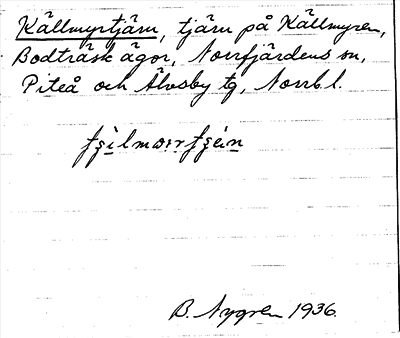 Källmyrtjärn, tjärn på Källmyren,
Bodträsk ägor, Norrfjärdens sn,
Piteå och Älvsby tg, Norrb. l.
B. Nygren 1936.